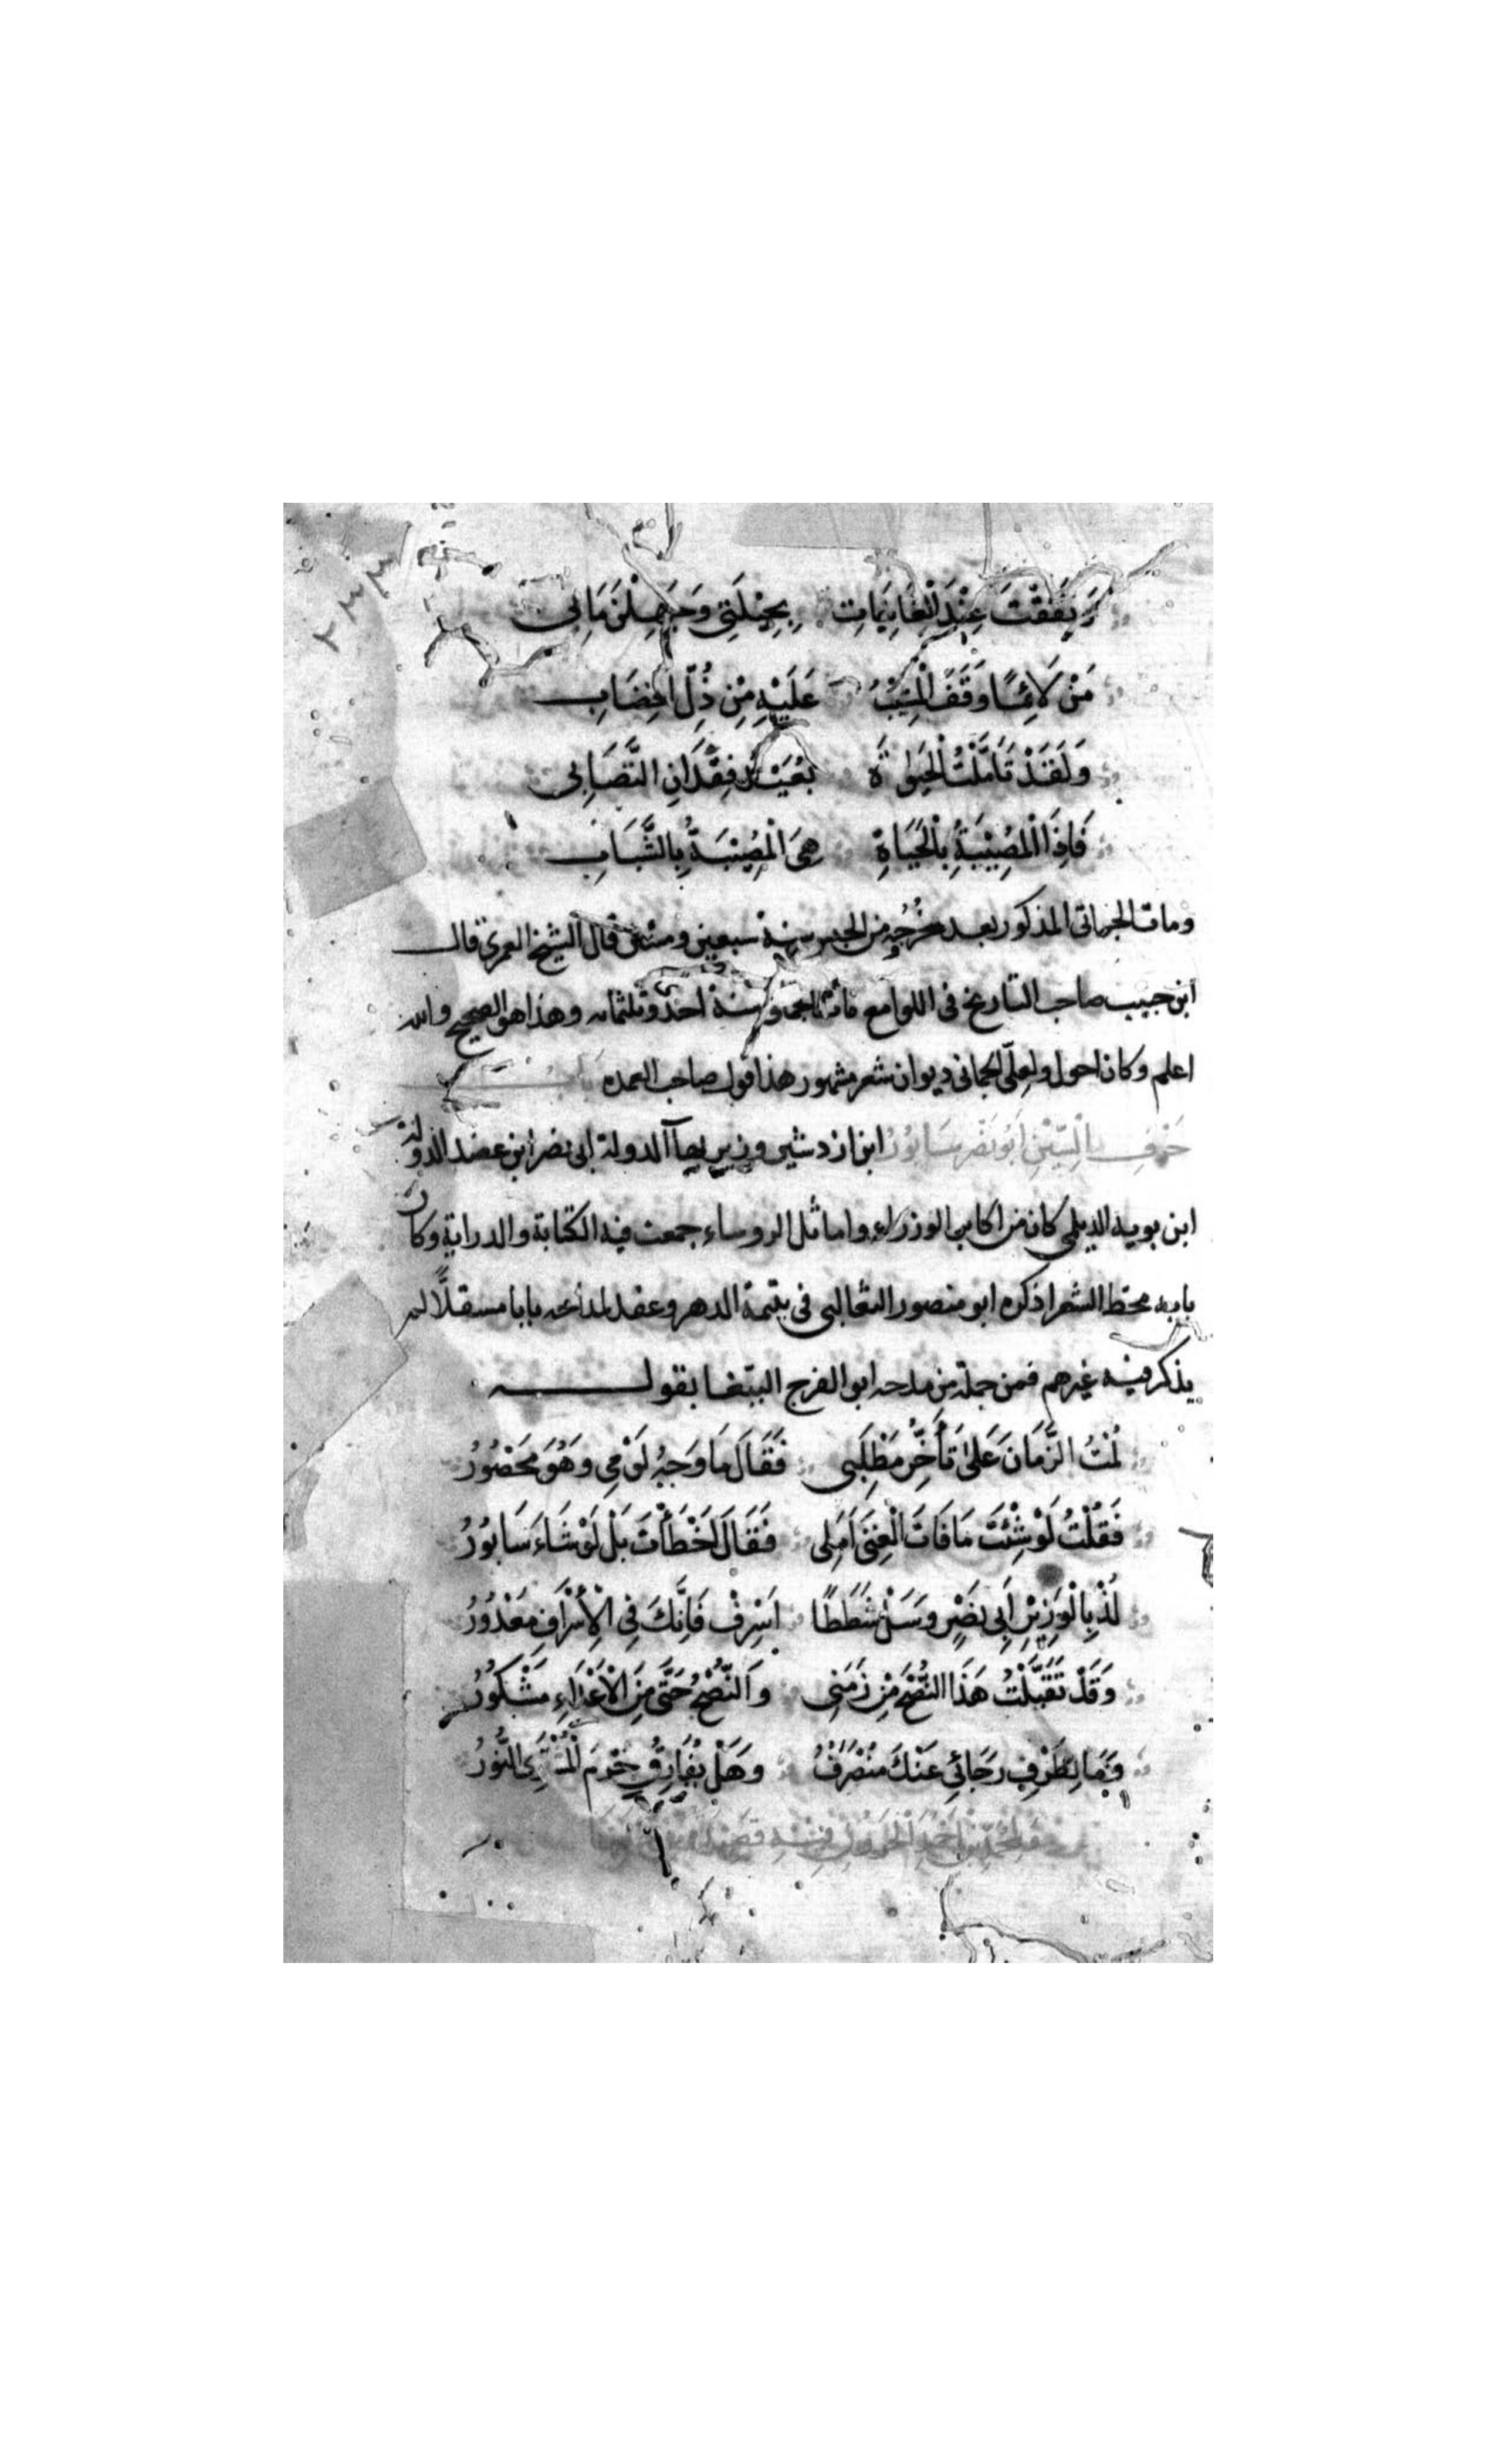 ٢٣٣
وَنَفَقْتَ عِنْدَ الْغَانِيَاتِ بِحِيْلَتِى وَجَهِلْنَ مَا بى
مَنْ لَائِمًا وَقَفَ الْمَشِيْبُ عَلَيْهِ مِنْ ذُلِّ الخِضَابِ
وَلَقَدْ تَأَمَّلْتُ الْحَيٰوةَ بُعَيْدَ فِقْدَانِ التَّصَابِى
فَاِذَا الْمُصِيْبَةُ بِالْحَيَاةِ هِىَ الْمُصِيْبَةُ بِالشَّبَابِ
ومات الحمانى المذكور بعد خُرُجِه من الحبس سنة سبعين ومئتين قال الشيخ العمرى قال
ابن حبيب صاحب التاريخ فى اللوامع مات الحمانى سنة احدى وثلثمائه وهذا هو الصحيح والله
اعلم وكان احول ولعلى الحمانى ديوان شعر مشهور هذا قول صاحب العمده
حَرْفِ السِّيْنِ اَبُو نَصْرٍ سَابُوْرُ ابن ازدشير وزير بهآ الدولة ابى نصر ابن عضد الدولة
ابن بويه الديلمى كان من اكابر الوزراء واماثل الروساء جمعت فيه الكتابة والدراية وكان
بابه محط الشعرا ذكره ابو منصور الثعالبى فى يتيمة الدهر وعقد لمداحه بابا مستقلًّا لم
يذكر فيه غيرهم فمن جملة من مدحه ابو الفرج الببغا بقوله
لُمْتُ الزَّمَانَ عَلىٰ تَأَخُّرِ مَطْلَبِى فَقَالَ مَا وَجْهُ لَوْمِى وَهُوَ مَحْصُوْرُ
فَقُلْتُ لَوْ شِئْتَ مَا فَاتَ الْغِنَى اَمَلِى فَقَالَ اَخْطَأْتَ بَلْ لَوْ شَاءَ سَابُوْرُ
لُذْ بِالْوَزِيْرِ اَبِى نَصْرٍ وَسَلْ شَطَطًا اَسْرِفْ فَاِنَّكَ فِى الْاِسْرَافِ مَعْذُوْرُ
وَقَدْ تَقَبَّلْتُ هَذَا النُّصْحَ مِنْ زَمَنِى وَالنُّصْحُ حَتَّى مِنَ الْاَعْدَاءِ مَشْكُوْرُ
وَمَا لِطَرْفِ رَجَائِي عَنْكَ مُنْصَرَفٌ وَهَلْ يُفَارِقُ جِرْمَ الْمُشْتَرِى النُّوْرُ